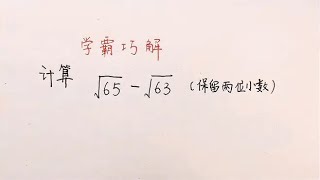 学霸巧解
计算 √65 - √63 (保留两位小数)